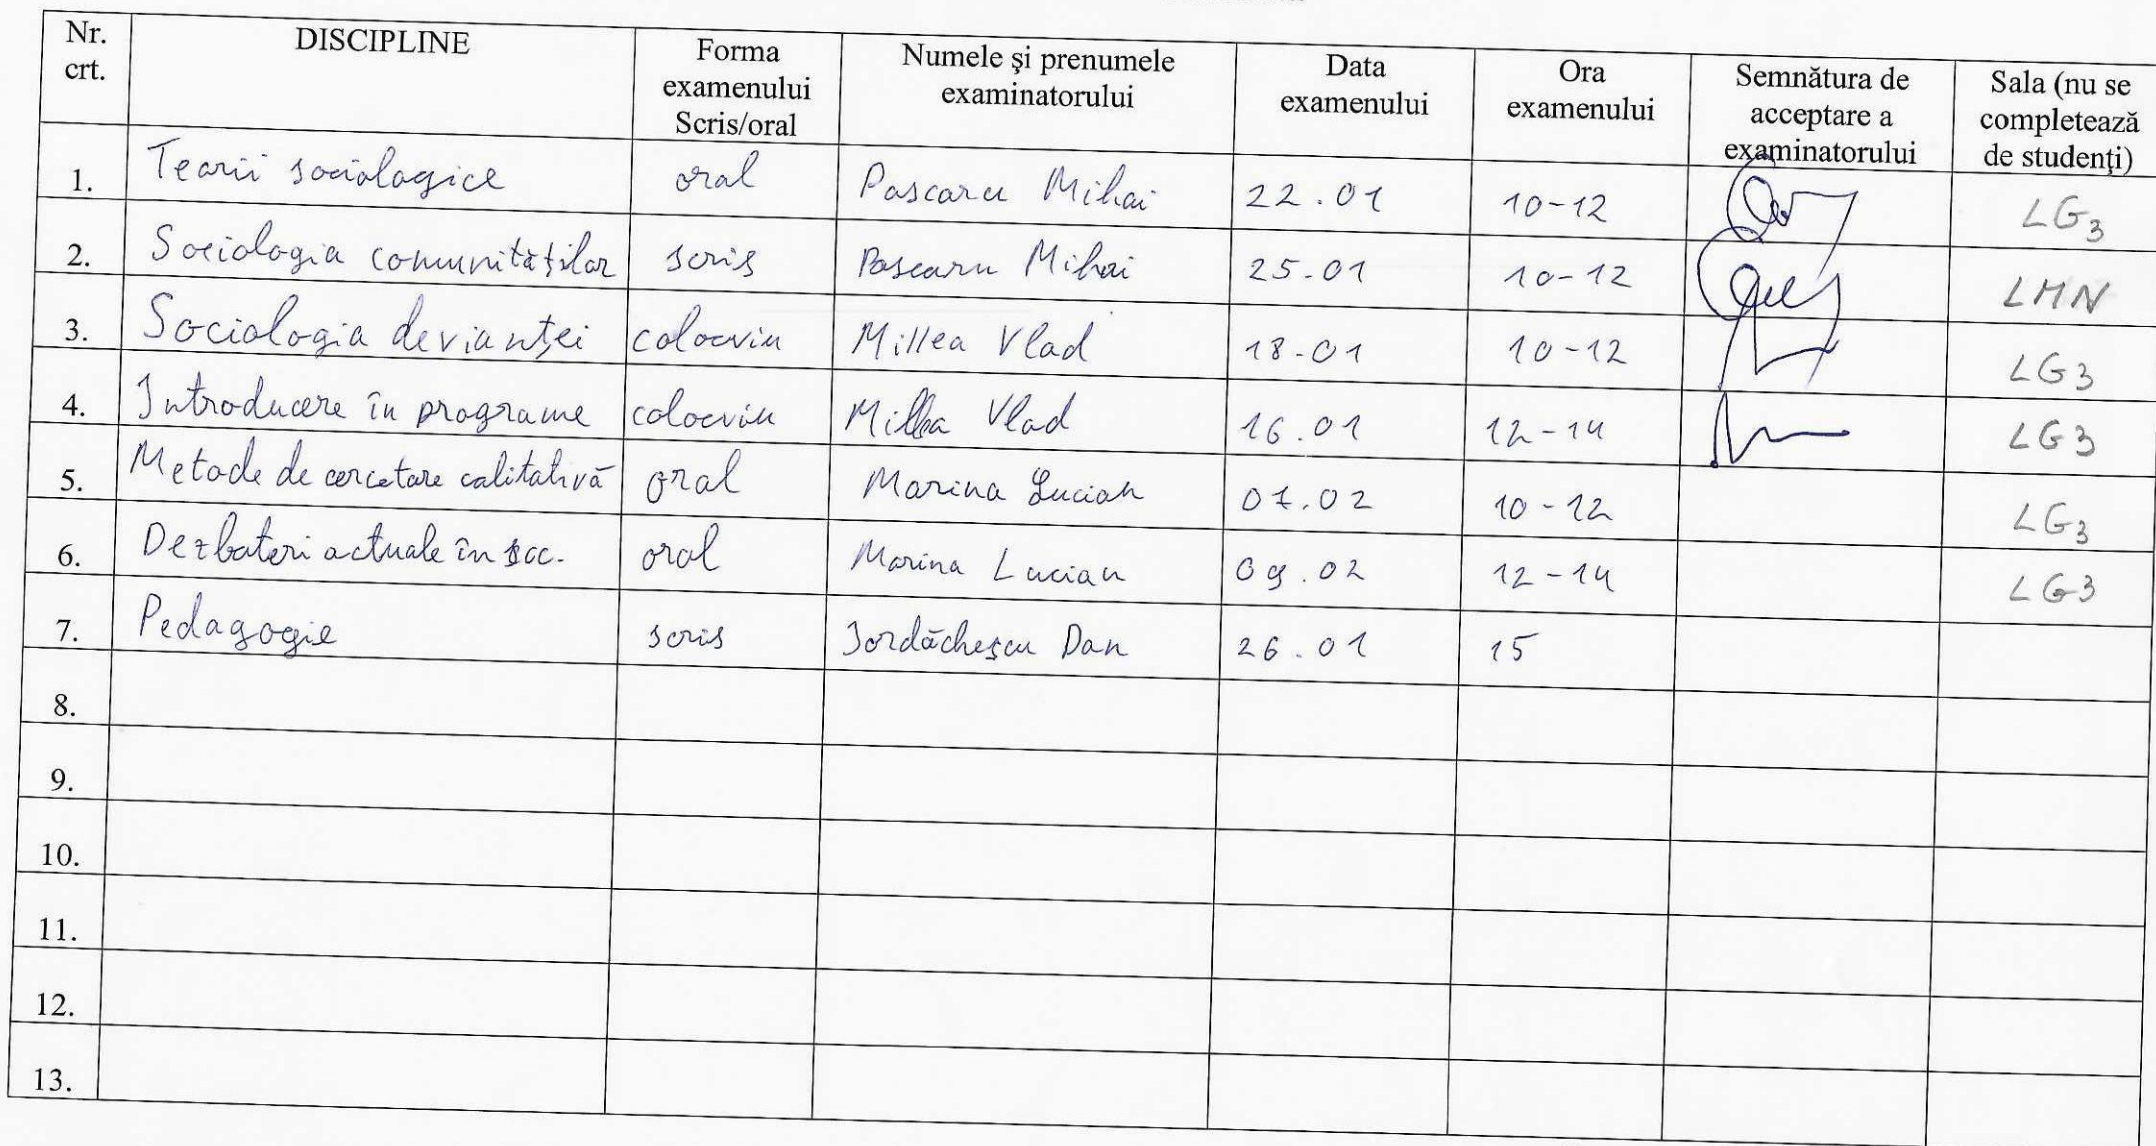 Nr. crt. DISCIPLINE Forma examenului Scris/oral Numele şi prenumele examinatorului Data examenului Ora examenului Semnătura de acceptare a examinatorului Sala (nu se completează de studenţi)
1. Teorii sociologice oral Pascaru Mihai 22.01 10-12 LG3
2. Sociologia comunităţilor scris Pascaru Mihai 25.01 10-12 LMN
3. Sociologia devianţei colocviu Millea Vlad 18.01 10-12 LG3
4. Introducere în programe colocviu Millea Vlad 16.01 12-14 LG3
5. Metode de cercetare calitativă oral Marina Lucian 02 10-12 LG3
6. Dezbateri actuale în soc. oral Marina Lucian 09.02 12-14 LG3
7. Pedagogie scris Iordăchescu Dan 26.01 15
8.
9.
10.
11.
12.
13.